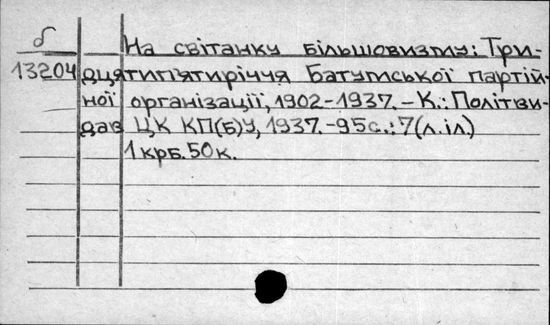 б
На світанку більшовизму: Три-
13204 дцятип'ятиріччя Батумської партій-
ної організації, 1902-1937. - К.: Політви-
дав ЦК КП(б)У, 1937. - 95с.: 7(л.іл.)
1 крб. 50 к.